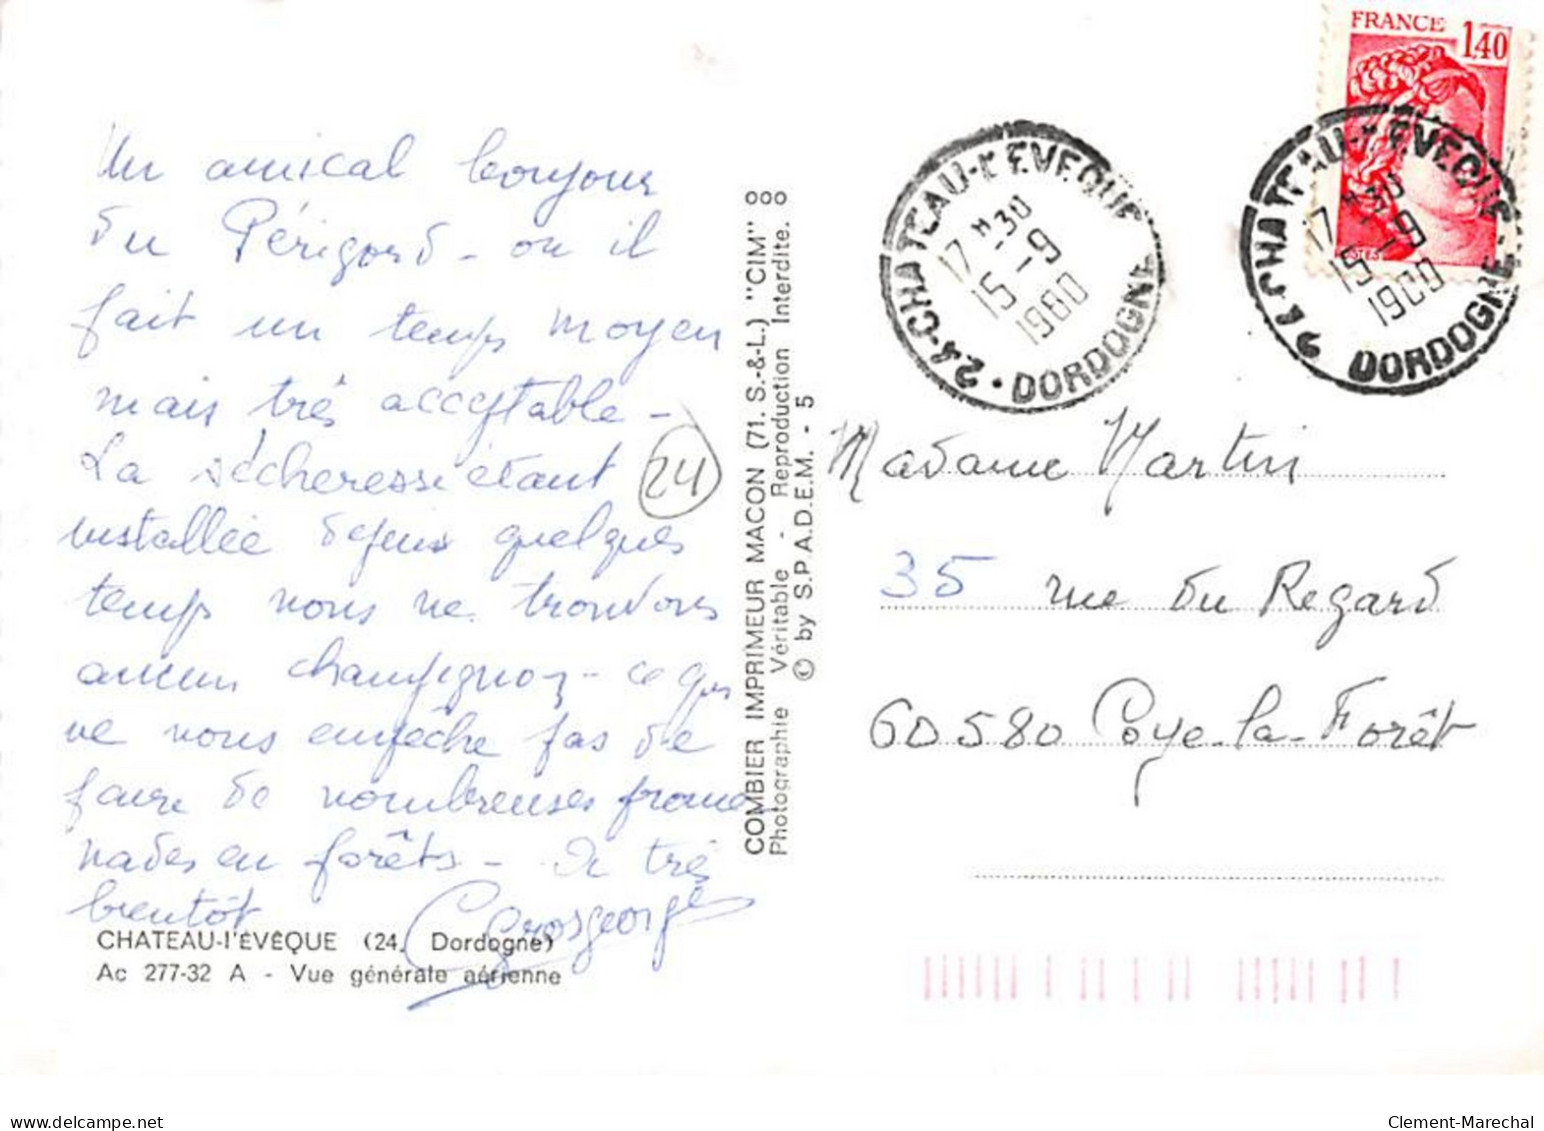 Un amical bonjour
du Périgord - où il
fait un temps moyen
mais très acceptable -
La sécheresse étant
installée depuis quelques
temps nous ne trouvons
aucun champignon - ce qui
ne nous empêche pas de
faire de nombreuses prome
nades en forêts - A très
bientôt
Grosgeorge
24
CHATEAU-l'ÉVÊQUE (24. Dordogne)
Ac 277-32 A - Vue générale aérienne
COMBIER IMPRIMEUR MACON (71. S.-&-L.) "CIM"
Photographie Véritable - Reproduction Interdite.
© by S.P.A.D.E.M. - 5
FRANCE 1,40
POSTES
24-CHATEAU-L'EVEQUE
17 H30
15 - 9
1980
DORDOGNE
24 CHATEAU-L'EVEQUE
17 H30
15 - 9
1980
DORDOGNE
Madame Martin
35 rue du Regard
60580 Coye-la-Forêt
delcampe.net
Clement-Marechal